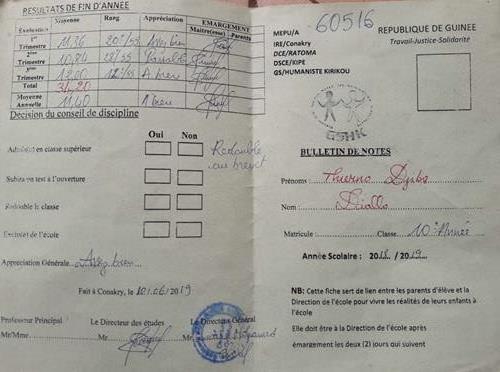 RESULTATS DE FIN D'ANNEE
Evaluation Moyenne Rang Appréciation EMARGEMENT
Maitre(esse) Parents
1er Trimestre 11,36 20e/53 Assez bien
Trimestre 10,84 Passable
3ème Trimestre 12,00 A bien
Total 34,20
Moyenne Annuelle 11,40 A bien
Décision du conseil de discipline
Oui Non
Admis en classe supérieur
Redouble au brevet
Subira un test à l'ouverture
Redouble la classe
Exclu de l'école
Appréciation Générale Assez bien
Fait à Conakry, le 12/06/2019
Professeur Principal Le Directeur des études Le Directeur Général
Mr/Mme Mr
MEPU/A 60516 REPUBLIQUE DE GUINEE
IRE/Conakry Travail-Justice-Solidarité
DCE/RATOMA
DSCE/KIPE
GS/HUMANISTE KIRIKOU
GSHK
BULLETIN DE NOTES
Prénoms : Thierno
Nom : Diallo
Matricule : Classe 10e Année
Année Scolaire : 2018 / 2019
NB: Cette fiche sert de lien entre les parents d'élève et la
Direction de l'école pour vivre les réalités de leurs enfants à
l'école
Elle doit être à la Direction de l'école après
émargement les deux (2) jours qui suivent